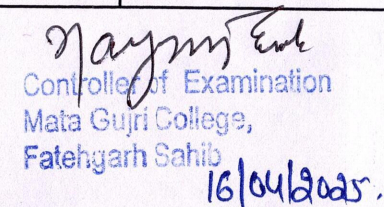 Controller of Examination
Mata Gujri College,
Fatehgarh Sahib
16/04/2025.